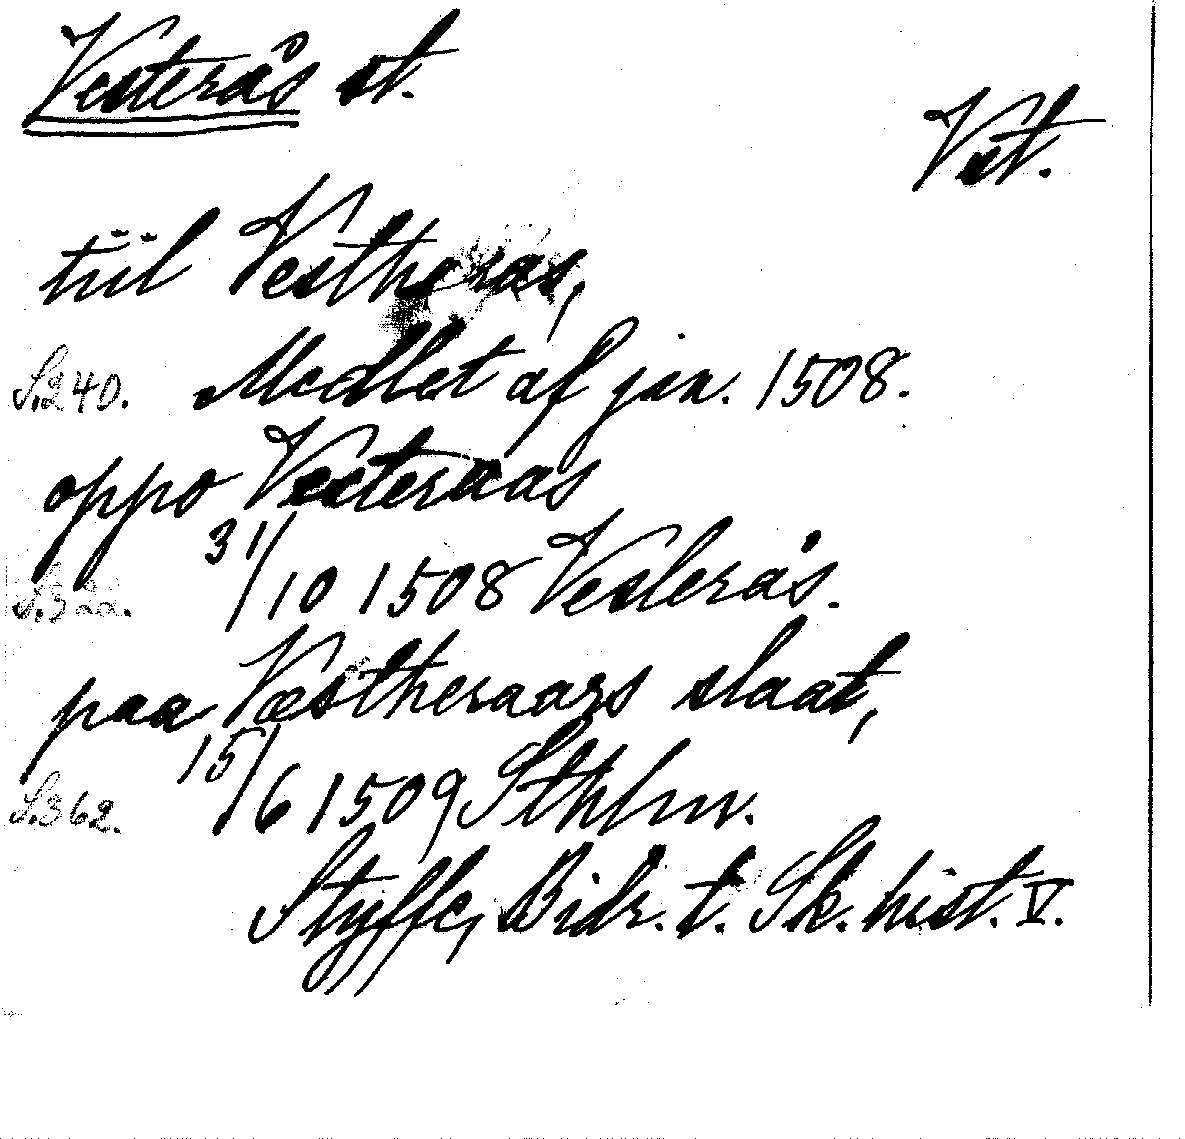 Vesterås st.
Vst.
tiil Vestheras,
S.240. Medlet af jan. 1508.
oppo Vesteraas
S.322. 31/10 1508 Vesterås.
paa Væstheraars slaat,
S.362. 15/6 1509 Sthlm.
Styffe, Bidr. t. Sk. hist. V.